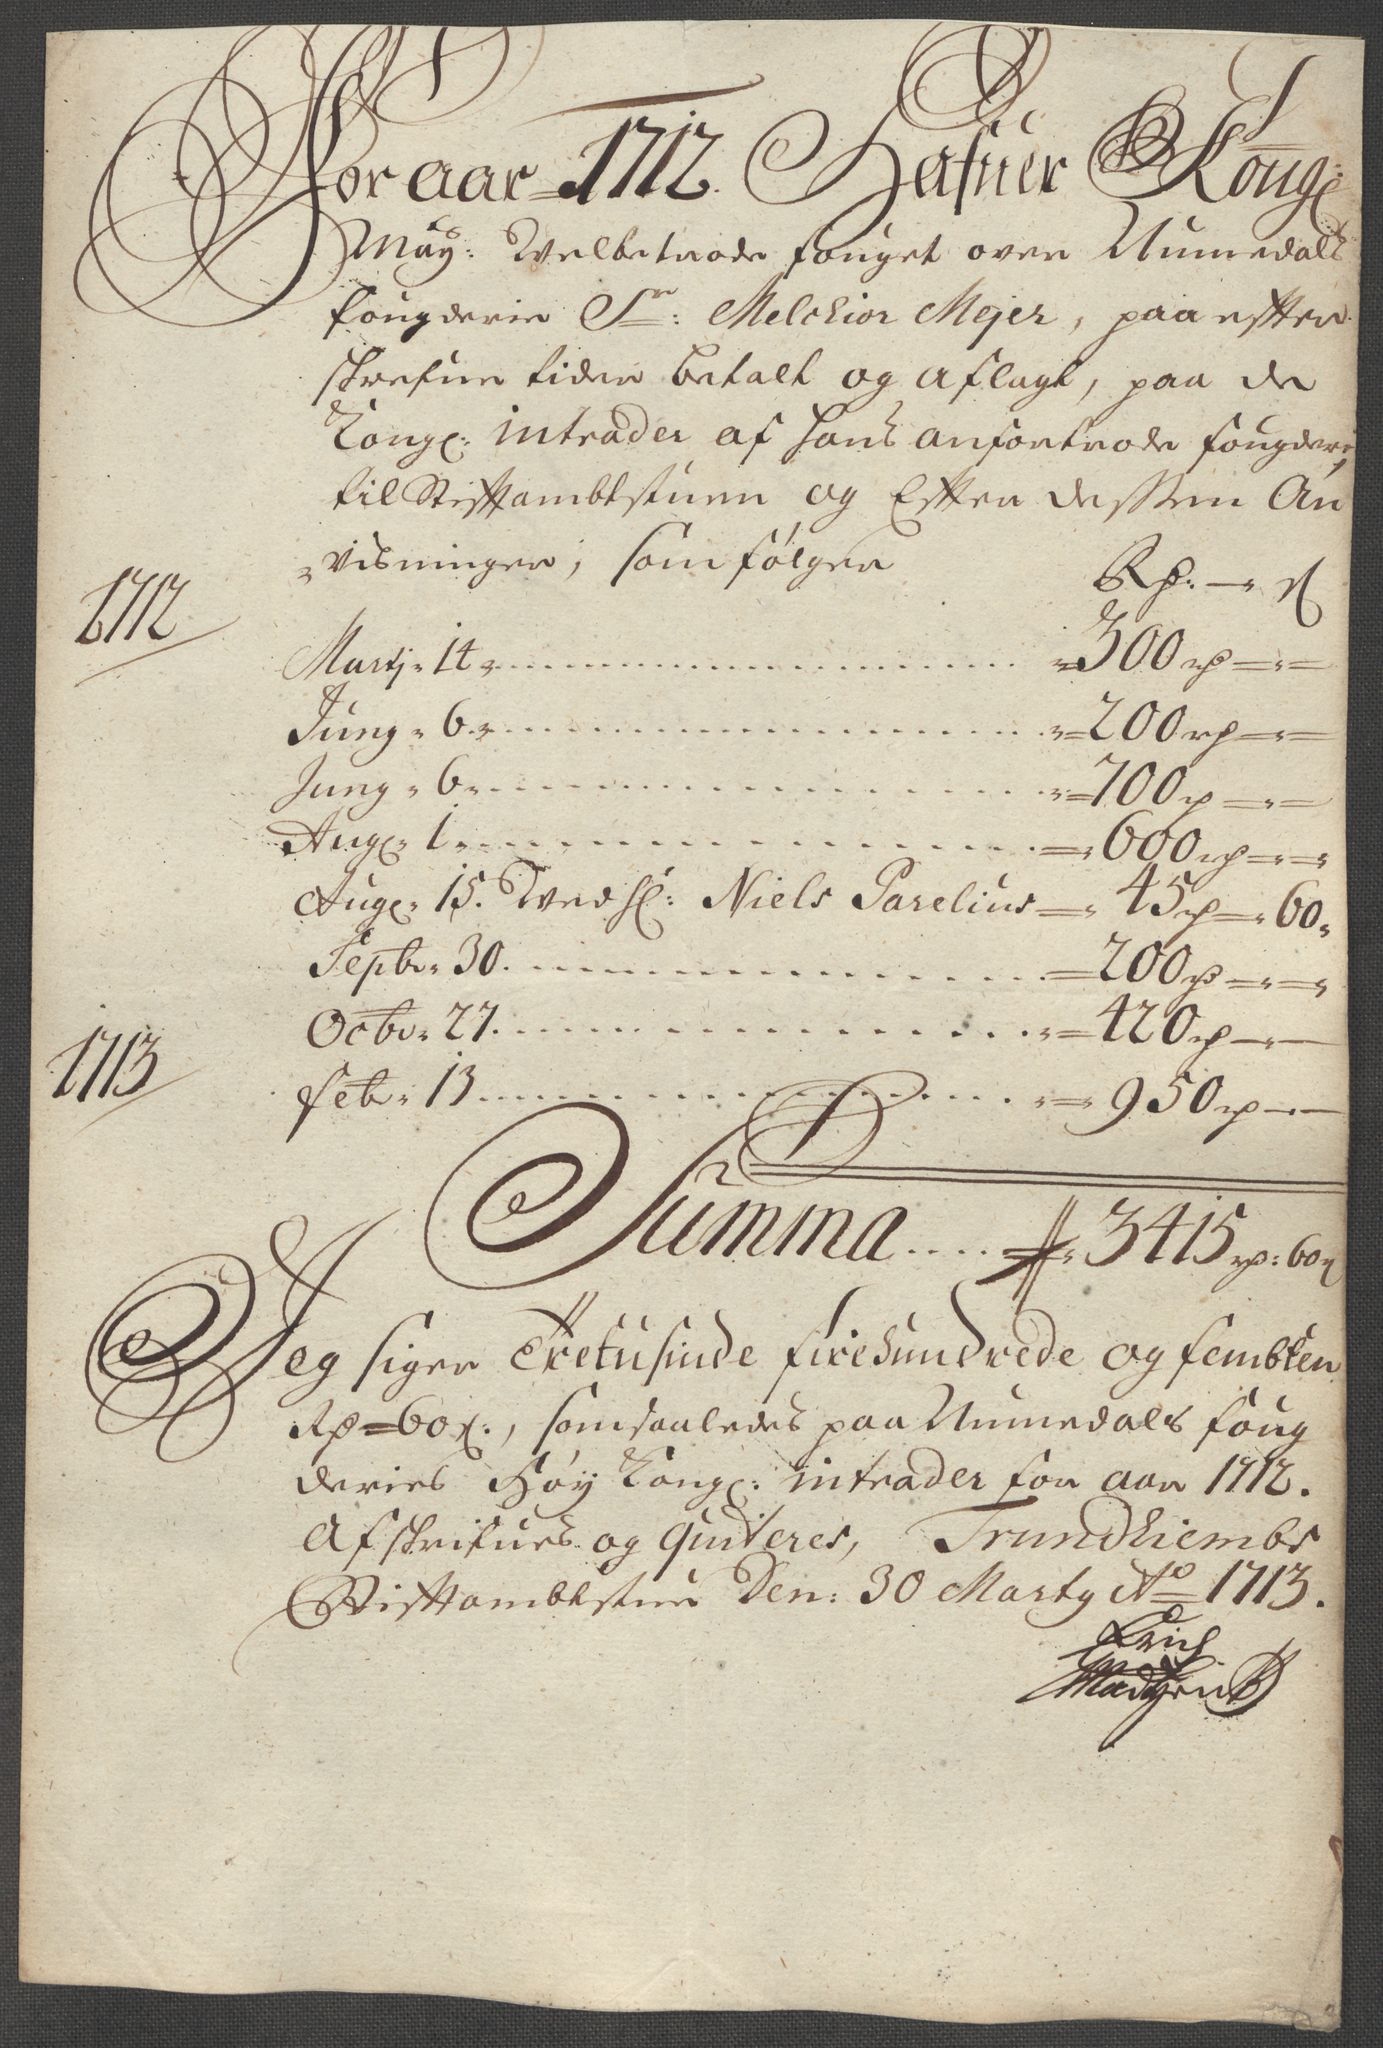 For aar 1712 Hafuer Kongl:
May: Welbetrode fouget over Numedals
fougderie Sr: Melchior Mejer, paa efter
skrefne tider betalt og aflagt, paa de
Kongl: intrader af hans anfortrode fougderi,
til Stiftambtstuen og Efter dessen An
visninger, som følger
Rd. — ß
1712
Martj 14 300 rd
Junij 6 200 rd
Junij 6 700 rd
Augl. 1 600 rd
Augl. 15. Wed Sl: Niels Parelius 45 rd 60
Septbr 30. 200 rd
Octbr 27. 420 rd
1713
Feb. 13 950 rd
Summa .... 3415 rd: 60 ß
Jeg siger Tretusinde firehundrede og fembten
Rd = 60 ß:, som saaledes paa Numedals foug
deries Høy Kongl: intrader for aar 1712.
Afskrifues og quiteres, Trundhiembs
Stiftambtstue Den: 30 Martij Ao 1713.
Erich